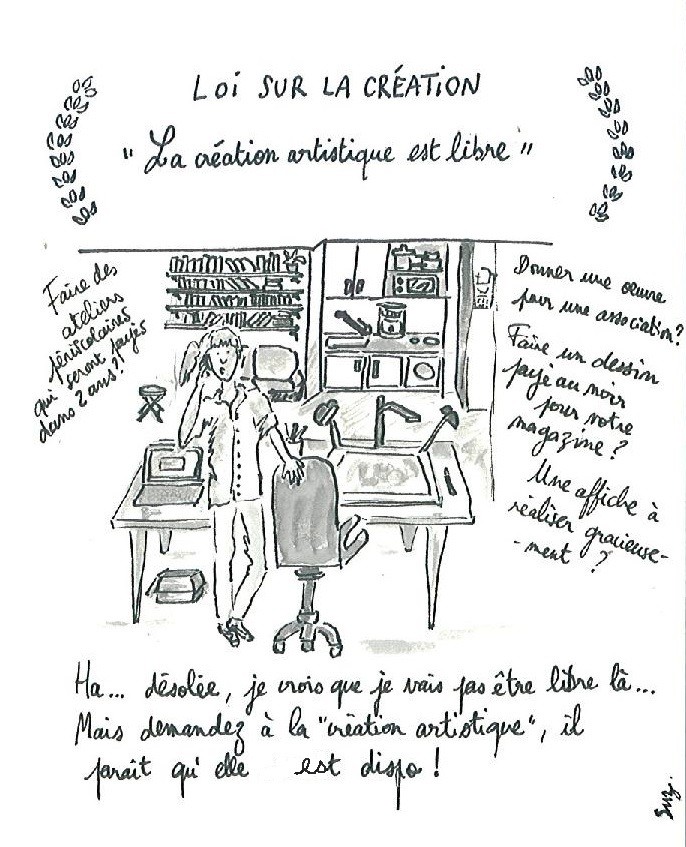 LOI SUR LA CRÉATION
"La création artistique est libre"
Faire des
ateliers
périscolaires
qui seront payés
dans 2 ans?!
Donner une œuvre
pour une association?
Faire un dessin
payé au noir
pour votre
magazine?
Une affiche à
réaliser gracieuse-
-ment ?
Ha... désolée, je crois que je vais pas être libre là...
Mais demandez à la "création artistique", il
paraît qu'elle est dispo !
Suz.